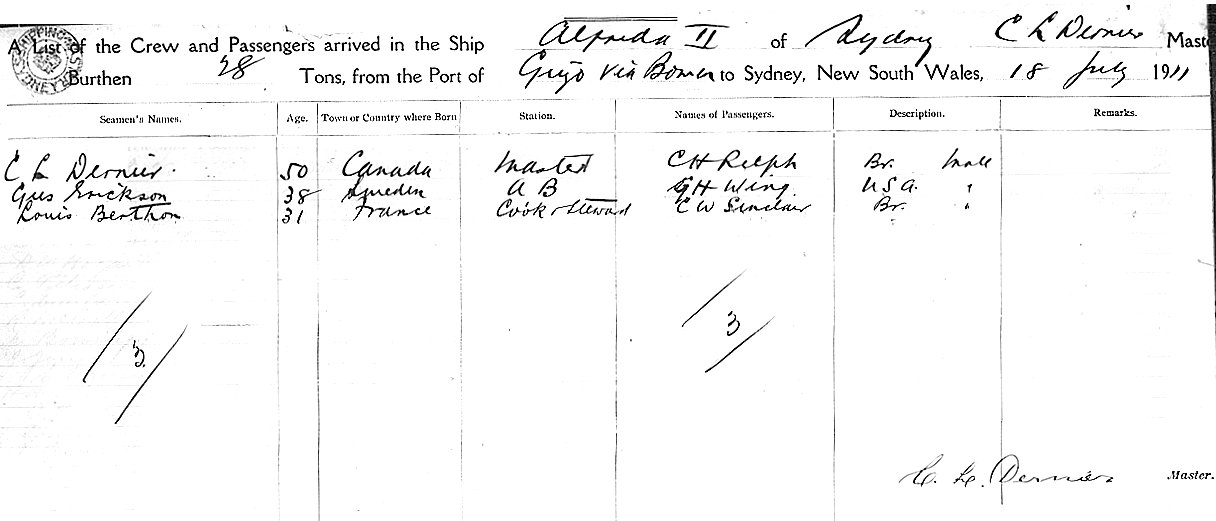 A List of the Crew and Passengers arrived in the Ship Alfreda II of Sydney C L Dernier Maste
Burthen 28 Tons, from the Port of Gizo via Bowen to Sydney, New South Wales, 18 July 1911
Seamen's Names. Age. Town or Country where Born Station. Names of Passengers. Description. Remarks.
C L Dernier. 50 Canada Master C H Relph Br. Male
Gus Erickson 38 Sweden A B G H Wing. U S a. "
Louis Berthon 31 France Cook & Steward C W Sinclair Br. "
3
3.
C. L. Dernier Master.